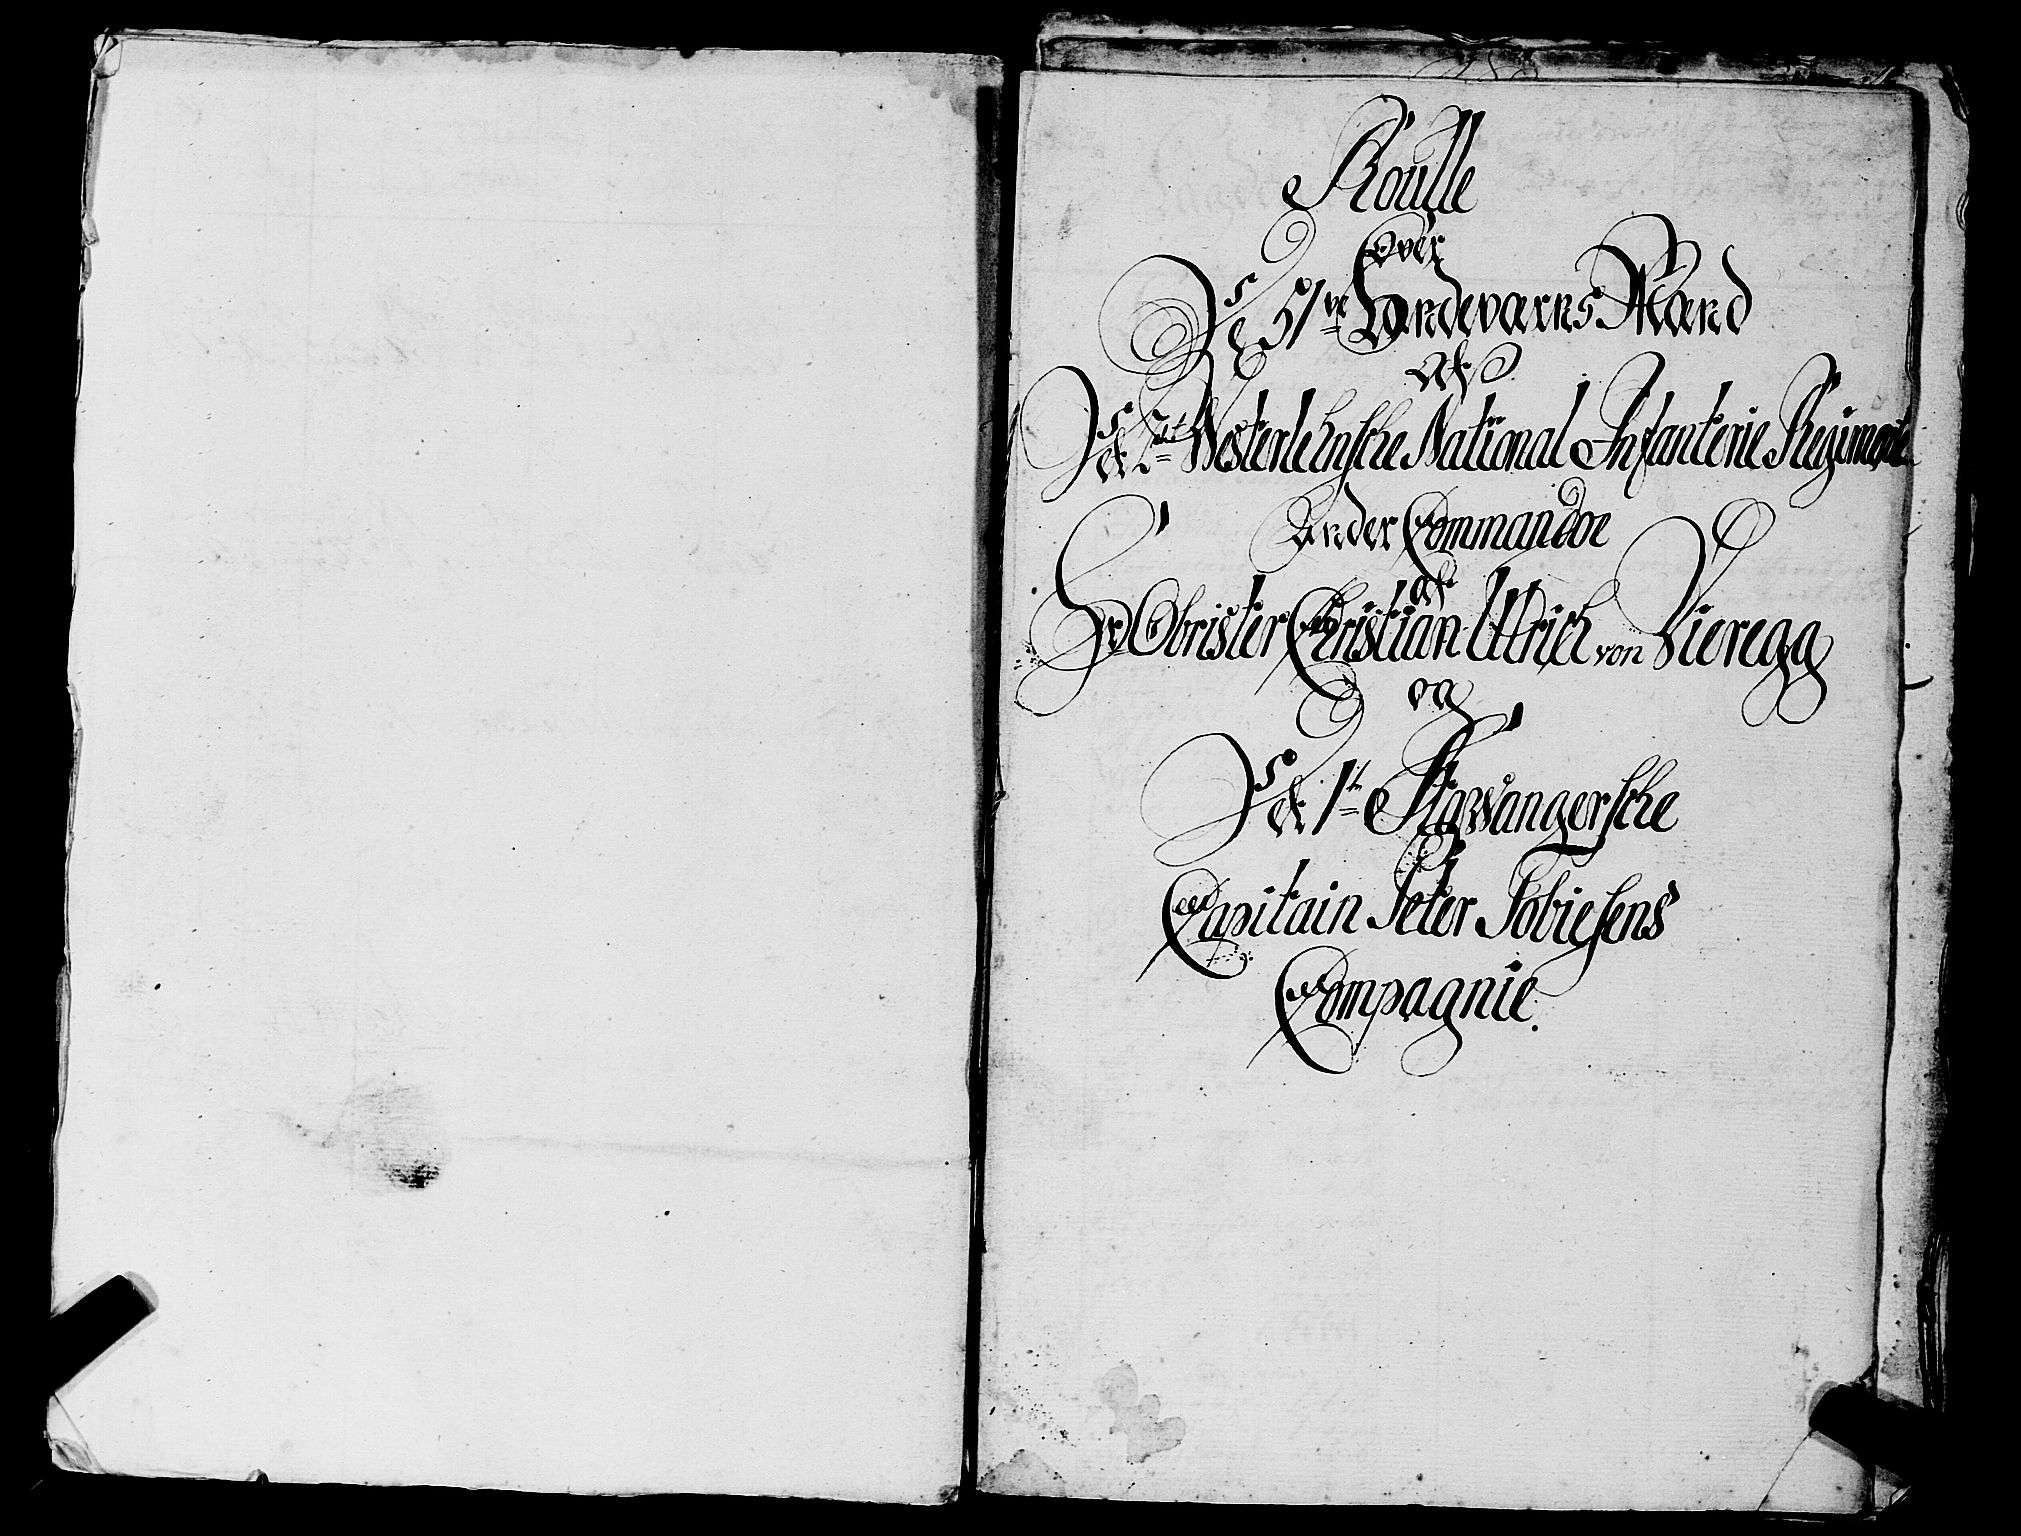 Roulle
over
De 51ve Landeværns Mænd
Af
Det 2det Westerlehnsche National Infanterie Regimente
Under Commandoe
af
Hr Obrister Christian Ulrich von Vieregg
og
Det 1te Stawangersche
Capitain Peter Tobiesens
Compagnie.